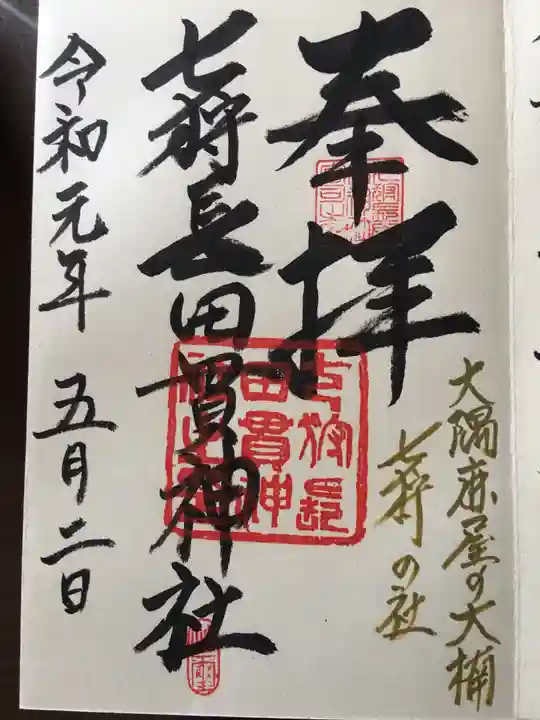 奉拝
大隅鹿屋の大楠
七狩の社
七狩長田貫神社
七狩長
田貫神
令和元年 五月二日